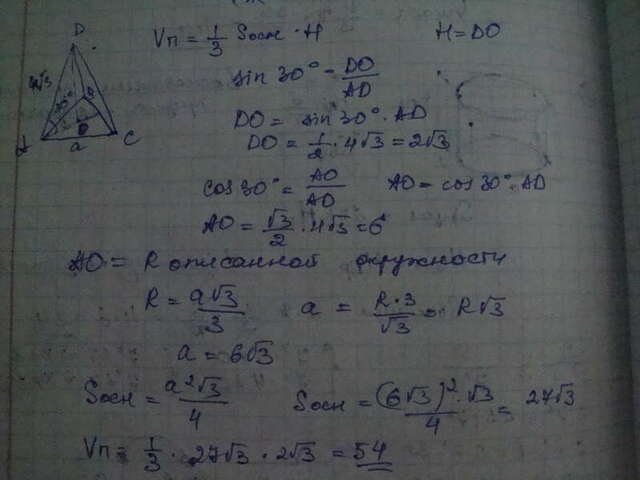 Vп = 1/3 Sосн · H    H = DO
sin 30° = DO/AD
DO = sin 30° · AD
DO = 1/2 · 4√3 = 2√3
cos 30° = AO/AD    AO = cos 30° · AD
AO = √3/2 · 4√3 = 6
AO = R описанной окружности
R = a√3/3    a = R·3/√3 = R√3
a = 6√3
Sосн = a²√3/4    Sосн = (6√3)²·√3/4 = 27√3
Vп = 1/3 · 27√3 · 2√3 = 54
D
4√3
30°
A
a
C